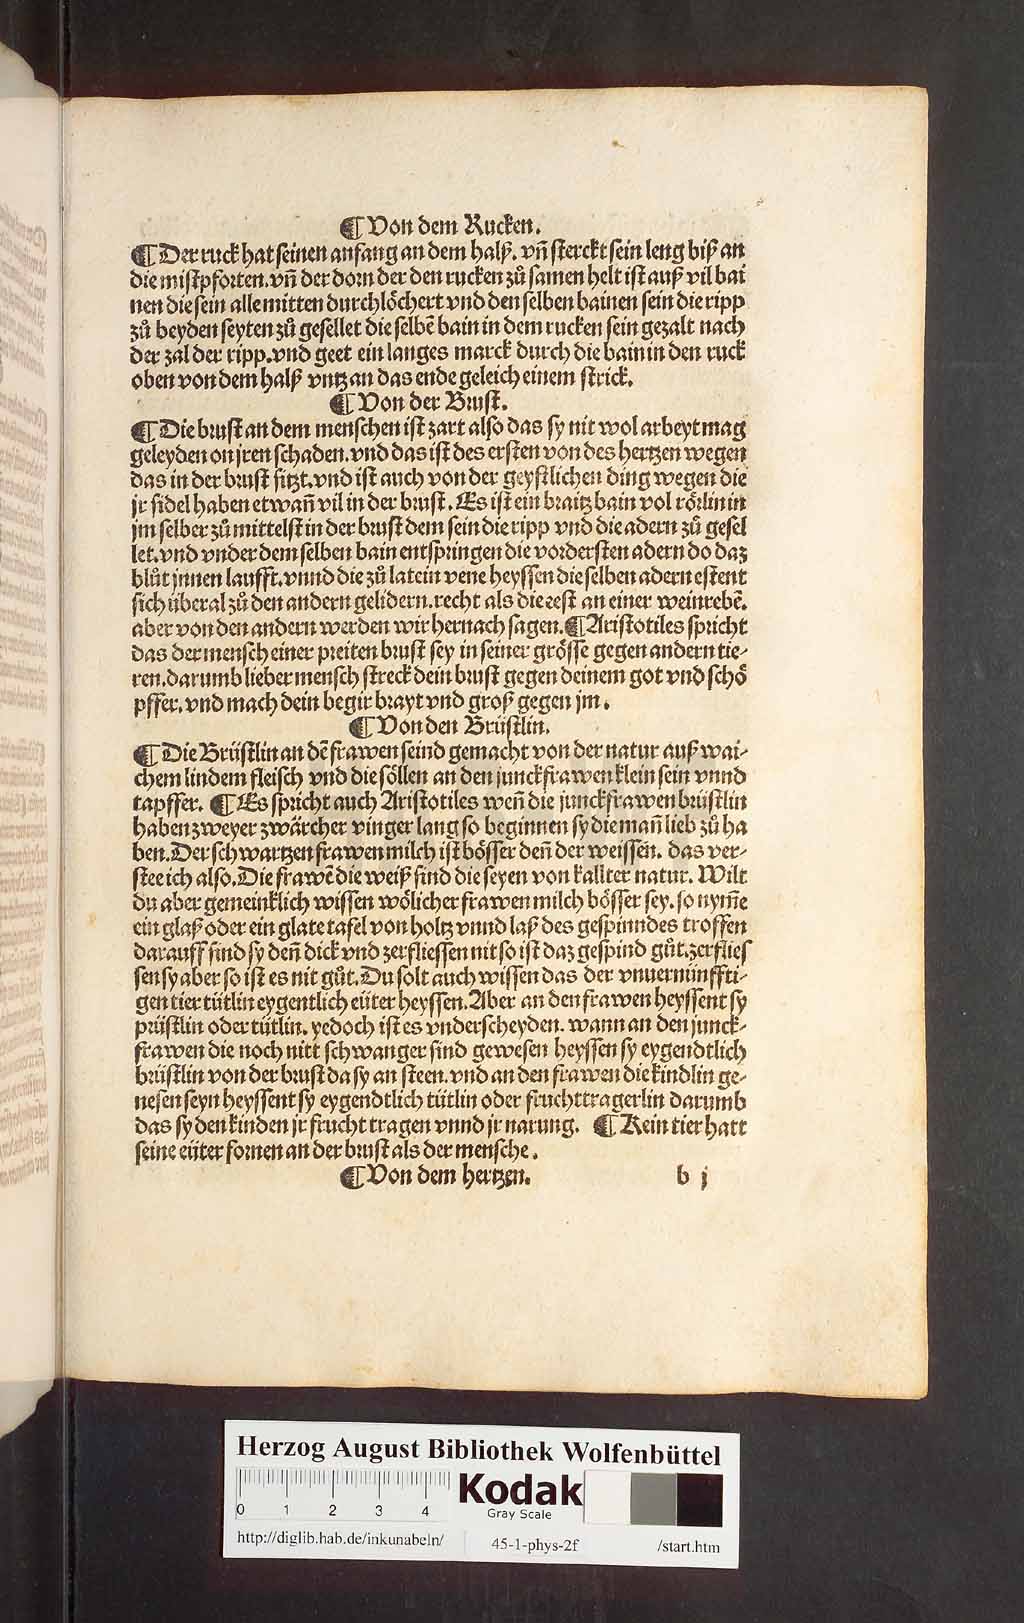 ¶ Von dem Rucken.
¶ Der ruck hat seinen anfang an dem halß. vñ sterckt sein leng biß an
die mistpforten. vñ der dorn der den rucken zů samen helt ist auß vil bai
nen die sein alle mitten durchlöchert vnd den selben bainen sein die ripp
zů beyden seyten zů gesellet die selbē bain in dem rucken sein gezalt nach
der zal der ripp. vnd geet ein langes marck durch die bain in den ruck
oben von dem halß vntz an das ende geleich einem strick.
¶ Von der Brust.
¶ Die brust an dem menschen ist zart also das sy nit wol arbeyt mag
geleyden on jren schaden. vnd das ist des ersten von des hertzen wegen
das in der brust sitzt. vnd ist auch von der geystlichen ding wegen die
jr sidel haben etwañ vil in der brust. Es ist ein braitz bain vol rörlin in
jm selber zů mittelst in der brust dem sein die ripp vnd die adern zů gesel
let. vnd vnder dem selben bain entspringen die vordersten adern do daz
blůt jnnen laufft. vnnd die zů latein vene heyssen die selben adern estent
sich überal zů den andern gelidern. recht als die rest an einer weinrebē.
aber von den andern werden wir hernach sagen. ¶ Aristotiles spricht
das der mensch einer preiten brust sey in seiner grösse gegen andern tie-
ren. darumb lieber mensch streck dein brust gegen deinem got vnd schö
pffer. vnd mach dein begir brayt vnd groß gegen jm.
¶ Von den Brüstlin.
¶ Die Brüstlin an dē frawen seind gemacht von der natur auß wai-
chem lindem fleisch vnd die söllen an den junckfrawen klein sein vnnd
tapffer. ¶ Es spricht auch Aristotiles weñ die junckfrawen brüstlin
haben zweyer zwärcher vinger lang so beginnen sy die mañ lieb zů ha
ben. Der schwartzen frawen milch ist bösser deñ der weissen. das ver-
stee ich also. Die frawē die weiß sind die seyen von kallter natur. Wilt
du aber gemeinklich wissen wölicher frawen milch bösser sey. so nym̄e
ein glaß oder ein glate tafel von holtz vnnd laß des gespinndes troffen
darauff sind sy deñ dick vnd zerfliessen nit so ist daz gespind gůt. zerflies
sen sy aber so ist es nit gůt. Du solt auch wissen das der vnuernünffti-
gen tier tütlin eygentlich eüter heyssen. Aber an den frawen heyssent sy
prüstlin oder tütlin. yedoch ist es vnderscheyden. wann an den junck-
frawen die noch nitt schwanger sind gewesen heyssen sy eygendtlich
brüstlin von der brust da sy an steen. vnd an den frawen die kindlin ge-
nesen seyn heyssent sy eygendtlich tütlin oder fruchttragerlin darumb
das sy den kinden jr frucht tragen vnnd jr narung. ¶ Kein tier hatt
seine eüter fornen an der brust als der mensche.
¶ Von dem hertzen. b j
Herzog August Bibliothek Wolfenbüttel
0 1 2 3 4
Kodak
Gray Scale
http://diglib.hab.de/inkunabeln/ 45-1-phys-2f /start.htm